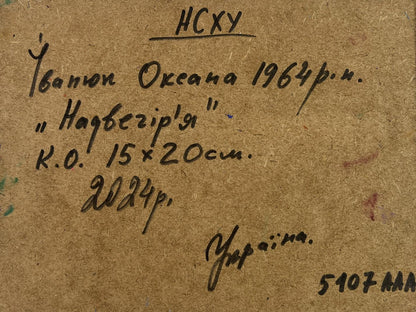 НСХУ
Іванюк Оксана 1964р.н.
„Надвечір'я"
К.О. 15×20см.
2024р.
Україна.
5107 AAA